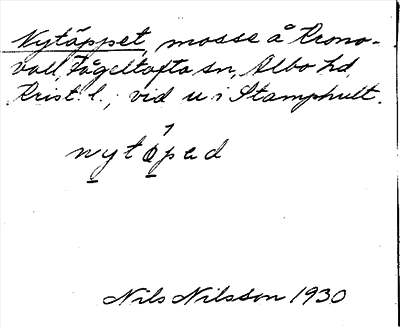 Nytäppet, mosse å Krono-
vall, Fågeltofta sn, Albo hd,
Krist. l., vid u i Stamphult.
Nils Nilsson 1930